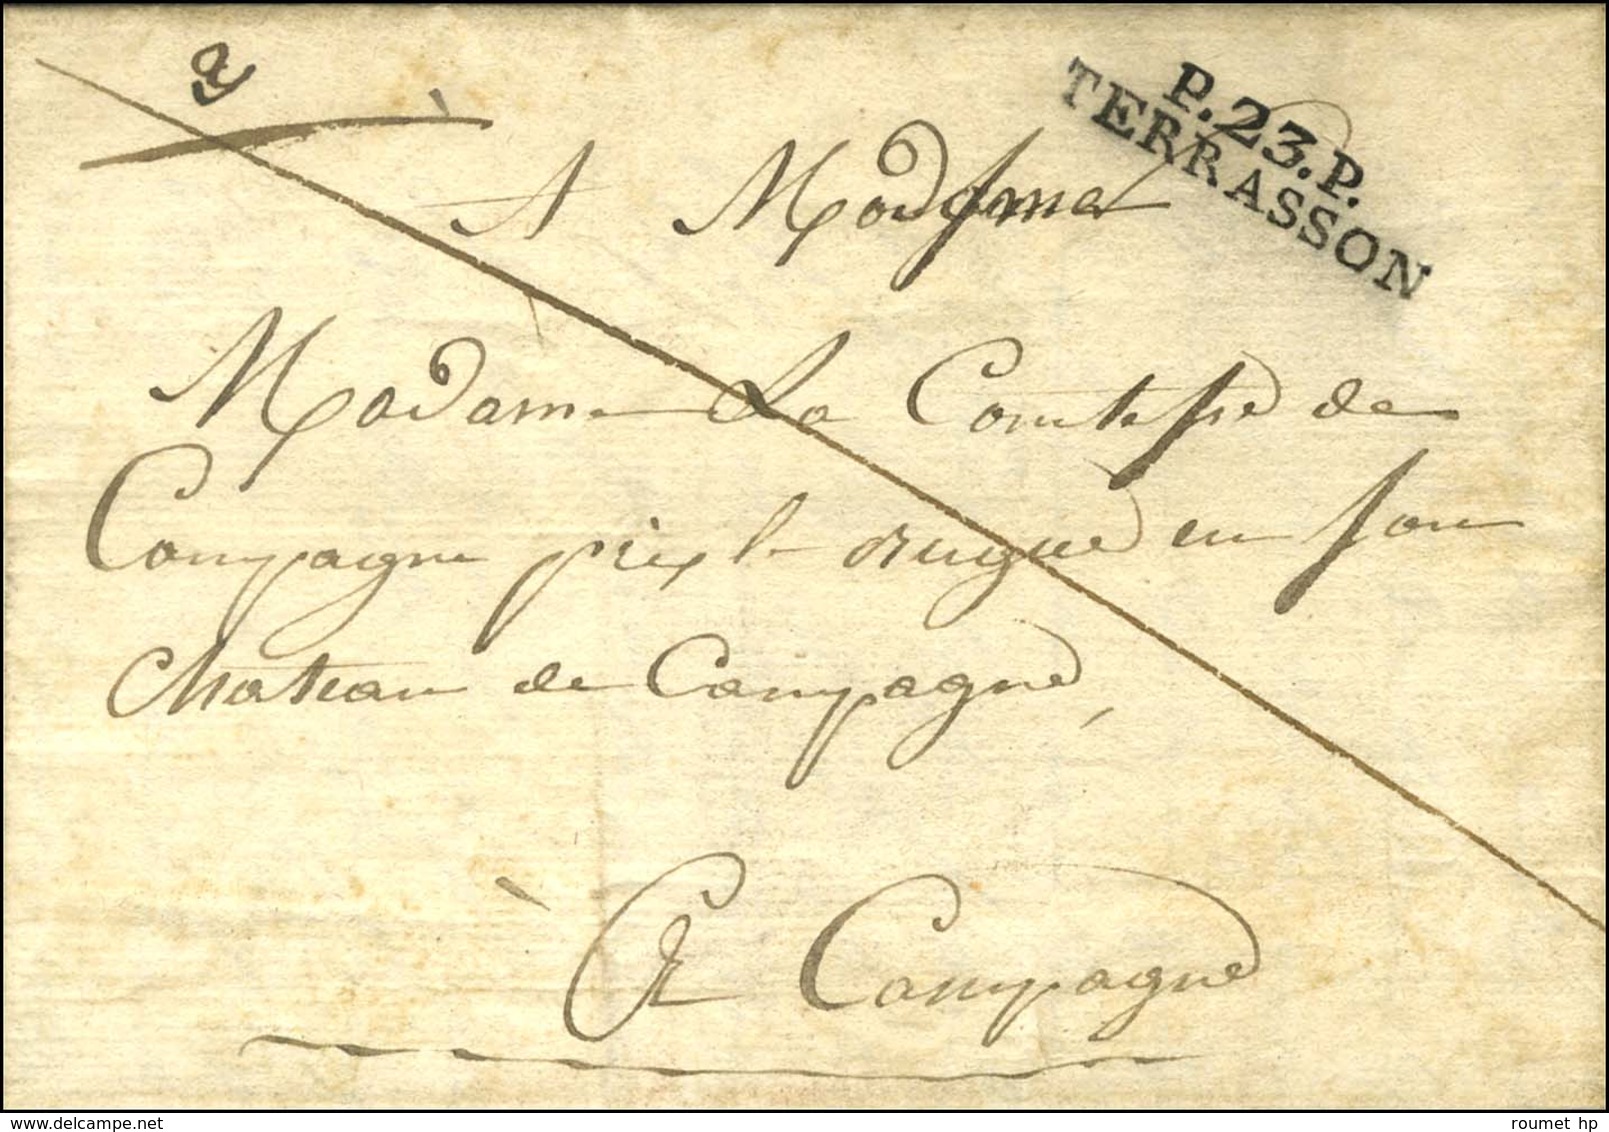 P.23.P.
TERRASSON
A Madame
Madame La Comtesse de
Campagne près le Bugue en son
Chateau de Campagne,
A Campagne
delcampe.net
roumet hp